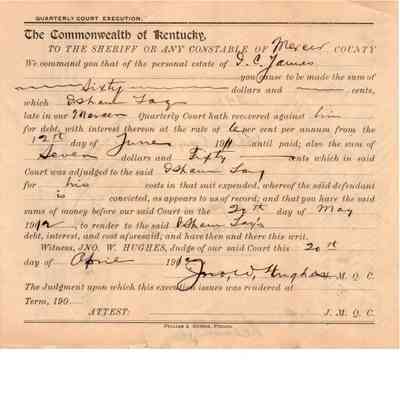 QUARTERLY COURT EXECUTION.
The Commonwealth of Kentucky,
TO THE SHERIFF OR ANY CONSTABLE OF Mercer COUNTY
We command you that of the personal estate of I. C. James
you cause to be made the sum of
Sixty dollars and cents,
which Isham Gay
late in our Mercer Quarterly Court hath recovered against him
for debt, with interest thereon at the rate of 6 per cent per annum from the
12th day of June 1911 until paid; also the sum of
Seven dollars and Fifty cents which in said
Court was adjudged to the said Isham Gay
for his costs in that suit expended, whereof the said defendant
is convicted, as appears to us of record; and that you have the said
sums of money before our said Court on the day of May
1912, to render to the said Isham Gay's
debt, interest, and cost aforesaid; and have then and there this writ.
Witness, JNO. W. HUGHES, Judge of our said Court this 20th
day of April 1912
Jno. W. Hughes J. M. Q. C.
The Judgment upon which this execution issues was rendered at
Term, 190
ATTEST: J. M. Q. C.